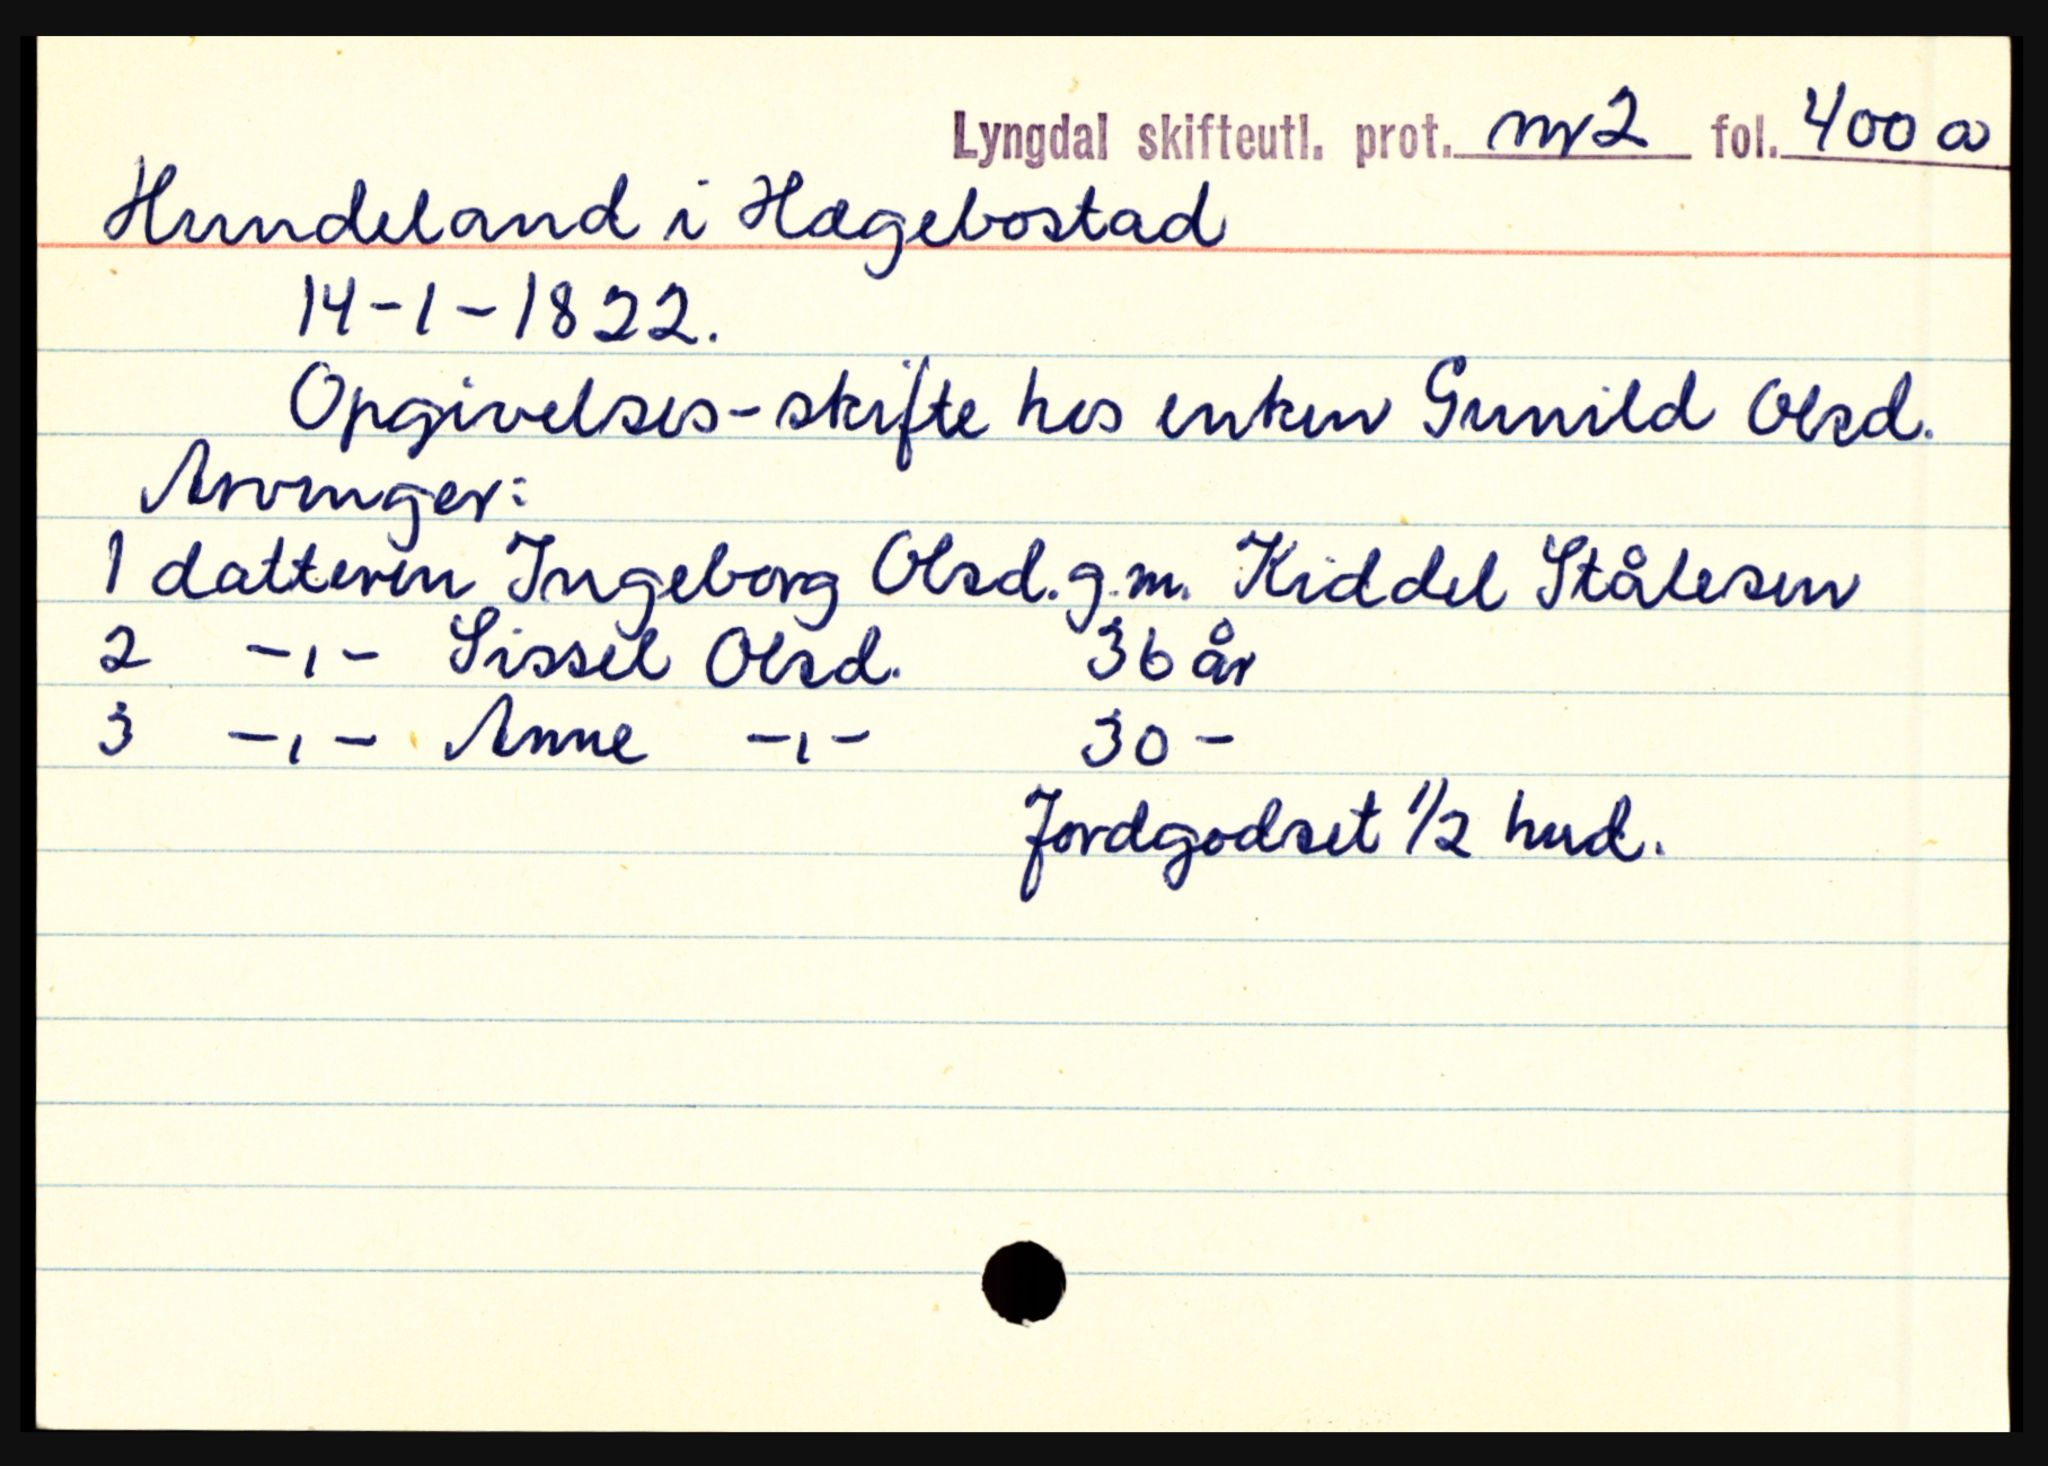 Lyngdal skifteutl. prot. nr 2 fol. 400 a
Hundeland i Hægebostad
14-1-1822.
Opgivelses-skifte hos enken Gunild Olsd.
Arvinger:
1 datteren Ingeborg Olsd. g.m. Kiddel Stålesen
2 -,- Sissel Olsd. 36 år
3 -,- Anne -,- 30 -
Jordgodset 1/2 hud.